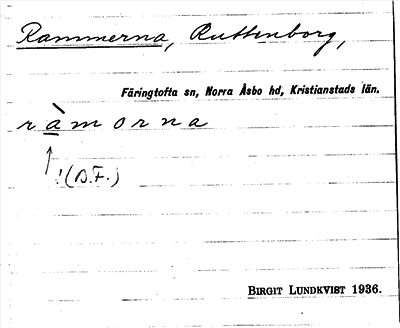 Rammerna, Ruttenborg,
Färingtofta sn, Norra Åsbo hd, Kristianstads län.
ràmorna
!(D.F.)
BIRGIT LUNDKVIST 1936.